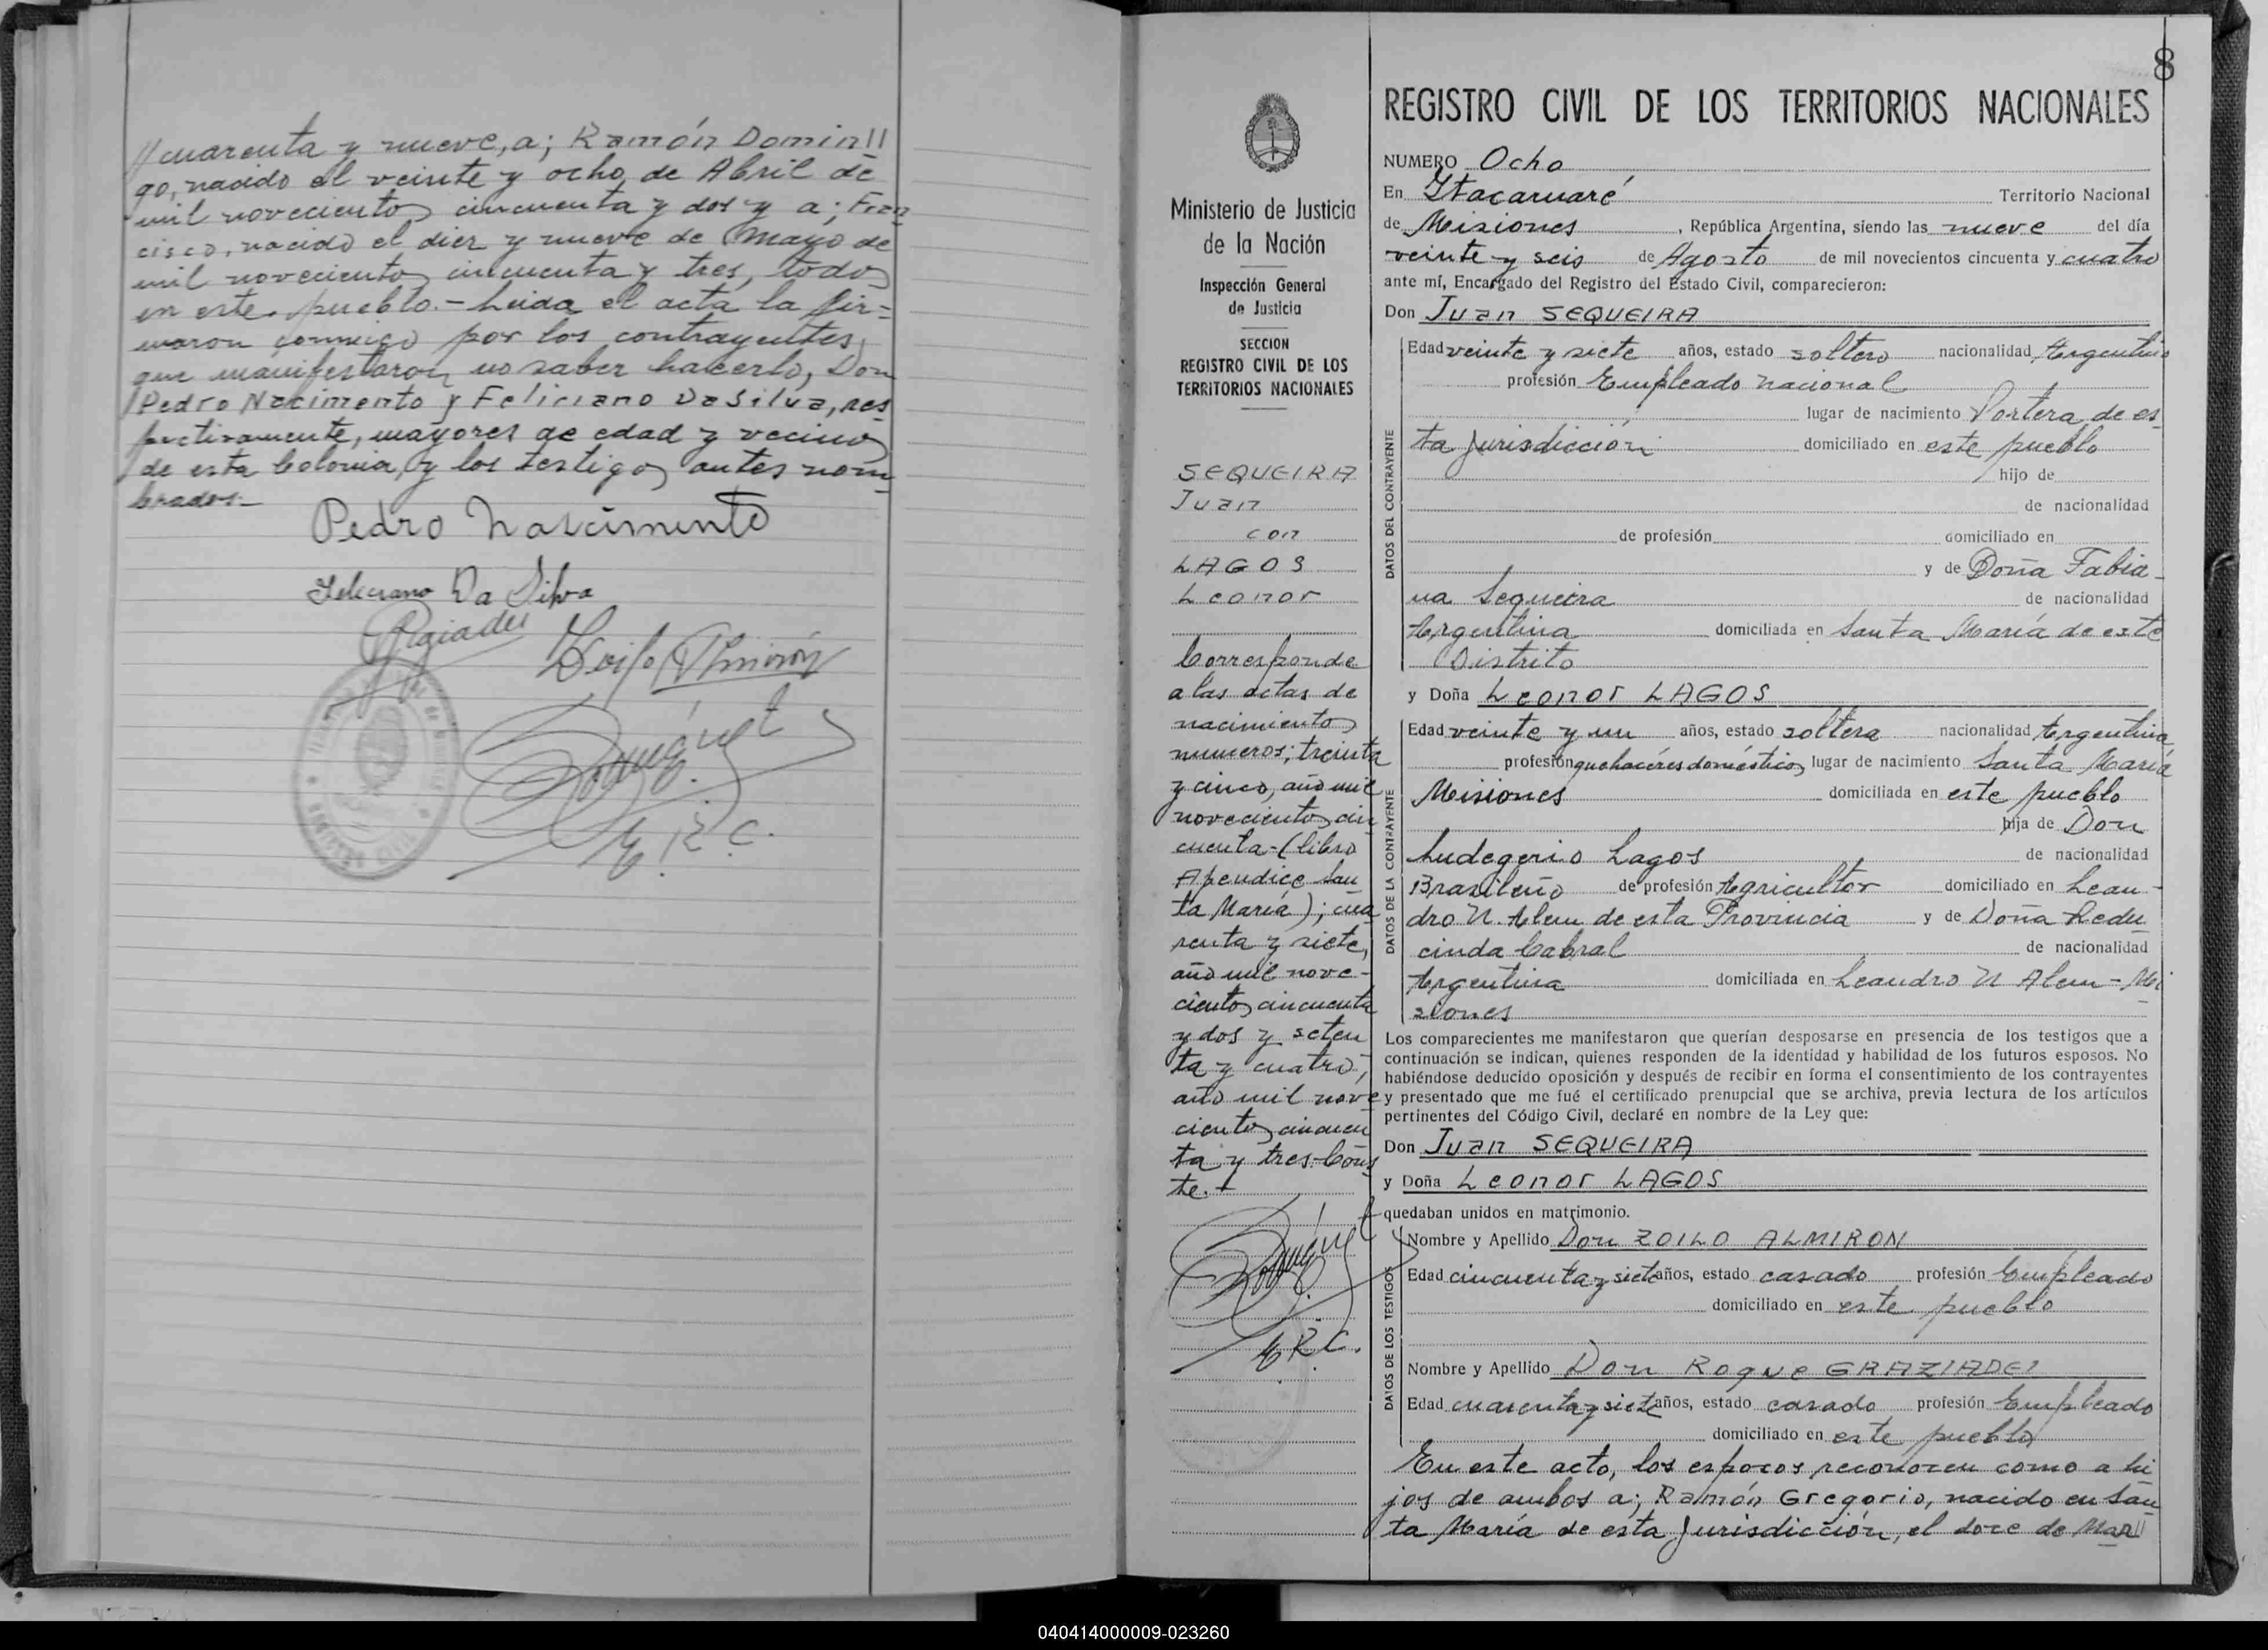 //cuarenta y nueve, a; Ramón Domin//
go, nacido el veinte y ocho de Abril de
mil novecientos cincuenta y dos y a; Fran
cisco, nacido el diez y nueve de Mayo de
mil novecientos cincuenta y tres, todos
en este pueblo.- Leida el acta la fir=
maron conmigo por los contrayentes,
que manifestaron no saber hacerlo, Don
Pedro Nacimento y Feliciano Da Silva, res
pectivamente, mayores de edad y vecinos
de esta Colonia, y los testigos antes nom
brados.-
Pedro Nascimento
Feleciano Da Silva
Zoilo Almirón
E. R. C.
8
Ministerio de Justicia
de la Nación
Inspección General
de Justicia
SECCION
REGISTRO CIVIL DE LOS
TERRITORIOS NACIONALES
SEQUEIRA
Juan
con
LAGOS
Leonor
Corresponde
a las actas de
nacimientos
numeros; treinta
y cinco, año mil
novecientos cin
cuenta-(libro
Apendice San
ta María); cua
renta y siete,
año mil nove-
cientos cincuenta
y dos y seten
ta y cuatro,
año mil nove
cientos cincuen
ta y tres-Cons
te.-
E. R. C.
REGISTRO CIVIL DE LOS TERRITORIOS NACIONALES
NUMERO Ocho
En Itacaruaré Territorio Nacional
de Misiones, República Argentina, siendo las nueve del día
veinte y seis de Agosto de mil novecientos cincuenta y cuatro
ante mí, Encargado del Registro del Estado Civil, comparecieron:
Don Juan SEQUEIRA
DATOS DEL CONTRAYENTE
Edad veinte y siete años, estado soltero nacionalidad Argentino
profesión Empleado nacional
lugar de nacimiento Portera de es
ta Jurisdicción domiciliado en este pueblo
hijo de
de nacionalidad
de profesión domiciliado en
y de Doña Fabia-
na Sequeira de nacionalidad
Argentina domiciliada en Santa María de este
Distrito
y Doña Leonor LAGOS
DATOS DE LA CONTRAYENTE
Edad veinte y un años, estado soltera nacionalidad Argentina
profesión quehacéres domésticos lugar de nacimiento Santa María
Misiones domiciliada en este pueblo
hija de Don
Ludegerio Lagos de nacionalidad
Brasileño de profesión Agricultor domiciliado en Lean-
dro N. Alem de esta Provincia y de Doña Redu
cinda Cabral de nacionalidad
Argentina domiciliada en Leandro N Alem - Mi
siones
Los comparecientes me manifestaron que querían desposarse en presencia de los testigos que a
continuación se indican, quienes responden de la identidad y habilidad de los futuros esposos. No
habiéndose deducido oposición y después de recibir en forma el consentimiento de los contrayentes
y presentado que me fué el certificado prenupcial que se archiva, previa lectura de los artículos
pertinentes del Código Civil, declaré en nombre de la Ley que:
Don Juan SEQUEIRA
y Doña Leonor LAGOS
quedaban unidos en matrimonio.
DATOS DE LOS TESTIGOS
Nombre y Apellido Don ZOILO ALMIRON
Edad cincuenta y siete años, estado casado profesión Empleado
domiciliado en este pueblo
Nombre y Apellido Don Roque GRAZIADEI
Edad cuarenta y siete años, estado casado profesión Empleado
domiciliado en este pueblo
En este acto, los esposos reconocen como a hi
jos de ambos a; Ramón Gregorio, nacido en San
ta María de esta Jurisdicción, el doce de Mar//
040414000009-023260